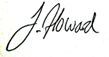 J. Howard